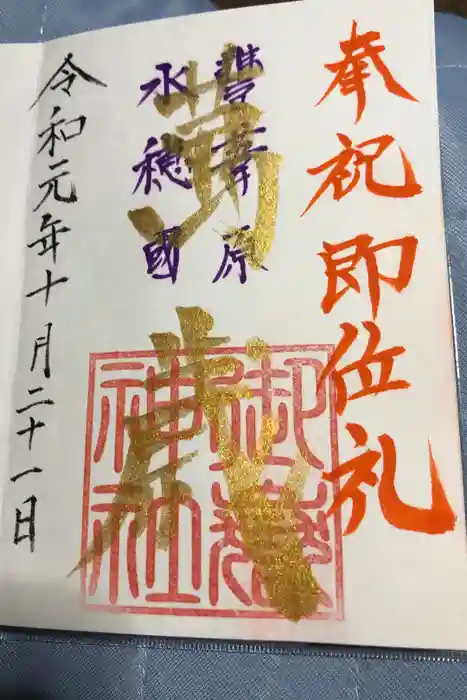 奉祝即位礼
豊葦原
水穂國
萬歳
御嶽
神社
令和元年十月二十一日